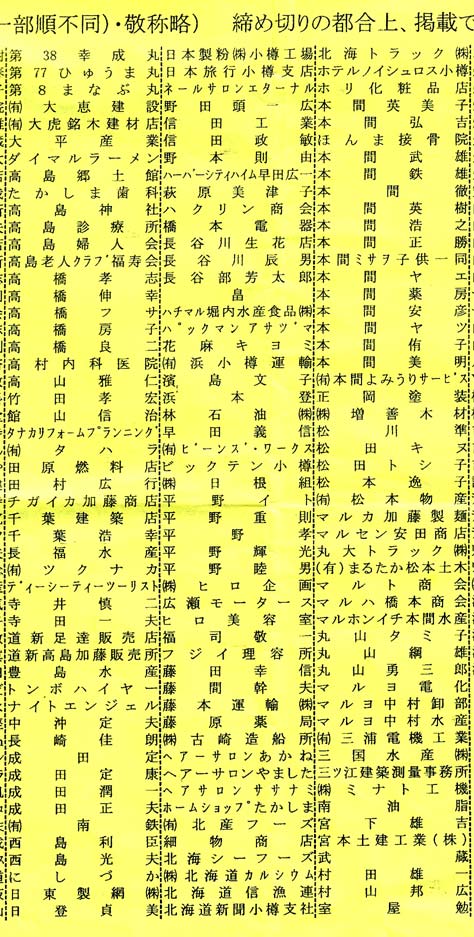 一部順不同)・敬称略) 締め切りの都合上、掲載で
第38幸成丸
第77ひゅうま丸
第8まなぶ丸
㈲大恵建設
㈲大虎銘木建材店
大平産業
ダイマルラーメン
高島郷土館
たかしま歯科
高島神社
高島診療所
高島婦人会
高島老人クラブ福寿会
高橋孝志
高橋伸幸
高橋フサ
高橋房子
高橋良二
高村内科医院
高山雅仁
竹田孝宏
館山信治
タナカリフォームプランニング
㈲タハラ
田原燃料店
田村広行
チガイカ加藤商店
千葉建築店
千葉浩幸
長福水産
㈲ツクナカ
ディーシーティーツーリスト
寺井慎二
寺田一夫
道新足達販売店
道新高島加藤販売所
豊島水産
トンボハイヤー
ナイトエンジェル
中沖定夫
長崎佳朗
成田定
成田定康
成田潤一
成田正夫
㈲南鉄
西島利臣
西島光夫
にしづか
日東製網㈱
日登貞美
日本製粉㈱小樽工場
日本旅行小樽支店
ネールサロンエターナル
野田頭一広
信田工業
信田政敏
野本則由
ハーバーシティハイム早田広一
萩原美津子
ハクリン商会
橋本電器
長谷川生花店
長谷川辰男
長谷部芳太郎
畠
ハチマル堀内水産食品㈱
パックマンアサヅマ
花麻キヨミ
㈲浜小樽運輸
濱島文子
浜本登
林石油㈱
早田義信
㈲ビーンズ・ワークス
ビックテン小樽
㈱日根組
平野イト
平野重則
平野孝
平野輝光
平野睦男
㈱ヒロ企画
広瀬モータース
ヒロ美容室
福司敬一
フジイ理容所
藤田幸信
藤間幹夫
藤本運輸㈱
藤原薬局
㈱古崎造船所
ヘアーサロンあかね
ヘアーサロンやました
ヘアサロンササナミ
ホームショップたかしま
㈲北産フーズ
細物商店
北海シーフーズ
㈱北海道カルシウム
北海道信漁連
北海道新聞小樽支社
北海トラック㈱
ホテルノイシュロス小樽
ホリ化粧品店
本間英美子
本間弘吉
ほんま接骨院
本間武雄
本間鉄雄
本間徹
本間英樹
本間浩之
本間正勝
本間ミサヲ子供一同
本間ヤエ
本間薬房
本間安彦
本間ヤツ
本間侑子
本間美明
㈲本間よみうりサービス
正岡塗装
㈱増善木材
松川準
松田キヌ
松田トシ子
松本逸子
㈲松本物産
マルカ加藤製麺
マルセン安田商店
丸大トラック㈱
(有)まるたか松本土木
マルト商会
マルハ橋本商会
マルホンイチ本間水産
丸山タミ子
丸山綱雄
丸山勇三郎
マルヨ電化
マルヨ中村卸部
マルヨ中村水産
㈲三浦電機工業
三国水産㈱
三ツ江建築測量事務所
㈱ミナト工機
南油脂
宮下雄吉
宮本土建工業(株)
武蔵
村田雄一
村山邦広
室屋勉